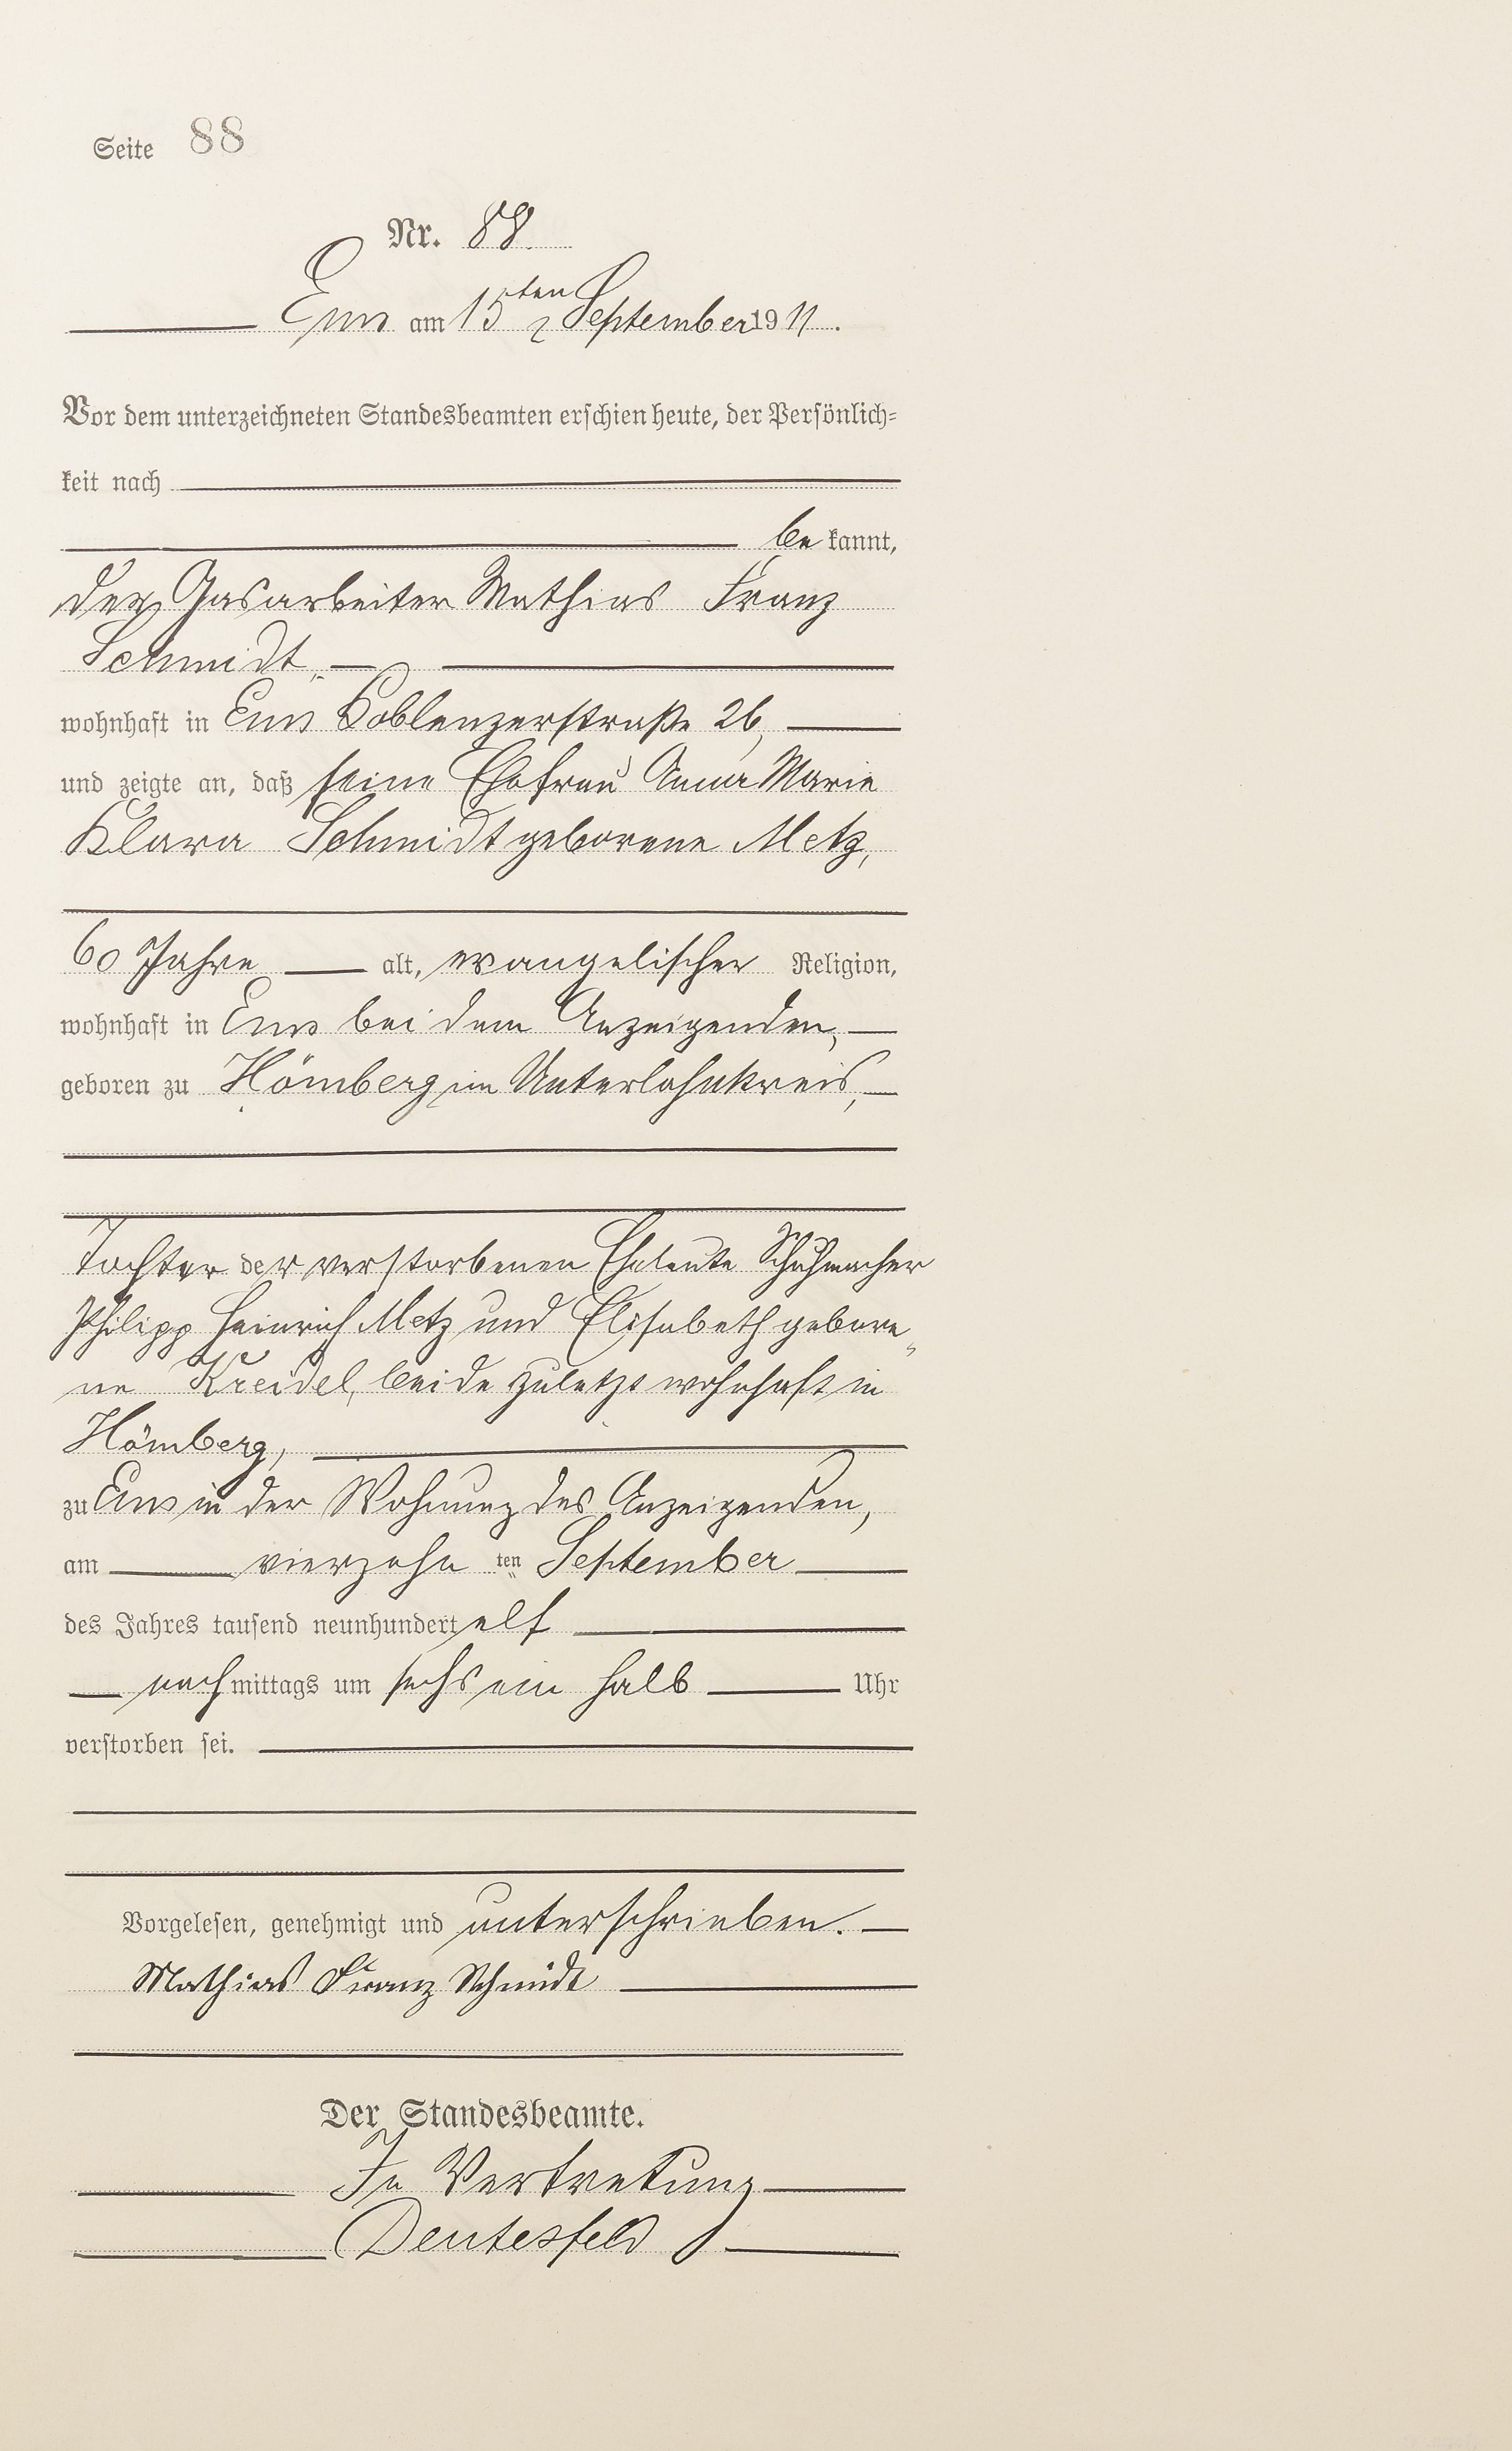 Seite 88
Nr. 88.
Ems am 15ten September 1911.
Vor dem unterzeichneten Standesbeamten erschien heute, der Persönlich-
keit nach
be kannt,
der Gasarbeiter Mathias Franz
Schmidt,
wohnhaft in Ems Koblenzerstraße 26,
und zeigte an, daß seine Ehefrau Anna Marie
Klara Schmidt geborene Metz,
60 Jahre alt, evangelischer Religion,
wohnhaft in Ems bei dem Anzeigenden,
geboren zu Hömberg im Unterlahnkreis,
Tochter der verstorbenen Eheleute Schuhmacher
Philipp Heinrich Metz und Elisabeth gebore„
ne Kreidel, beide zuletzt wohnhaft in
Hömberg,
zu Ems in der Wohnung des Anzeigenden,
am vierzehn ten September
des Jahres tausend neunhundert elf
nach mittags um sechs ein halb Uhr
verstorben sei.
Vorgelesen, genehmigt und unterschrieben.
Mathias Franz Schmidt
Der Standesbeamte.
In Vertretung
Deutesfeld